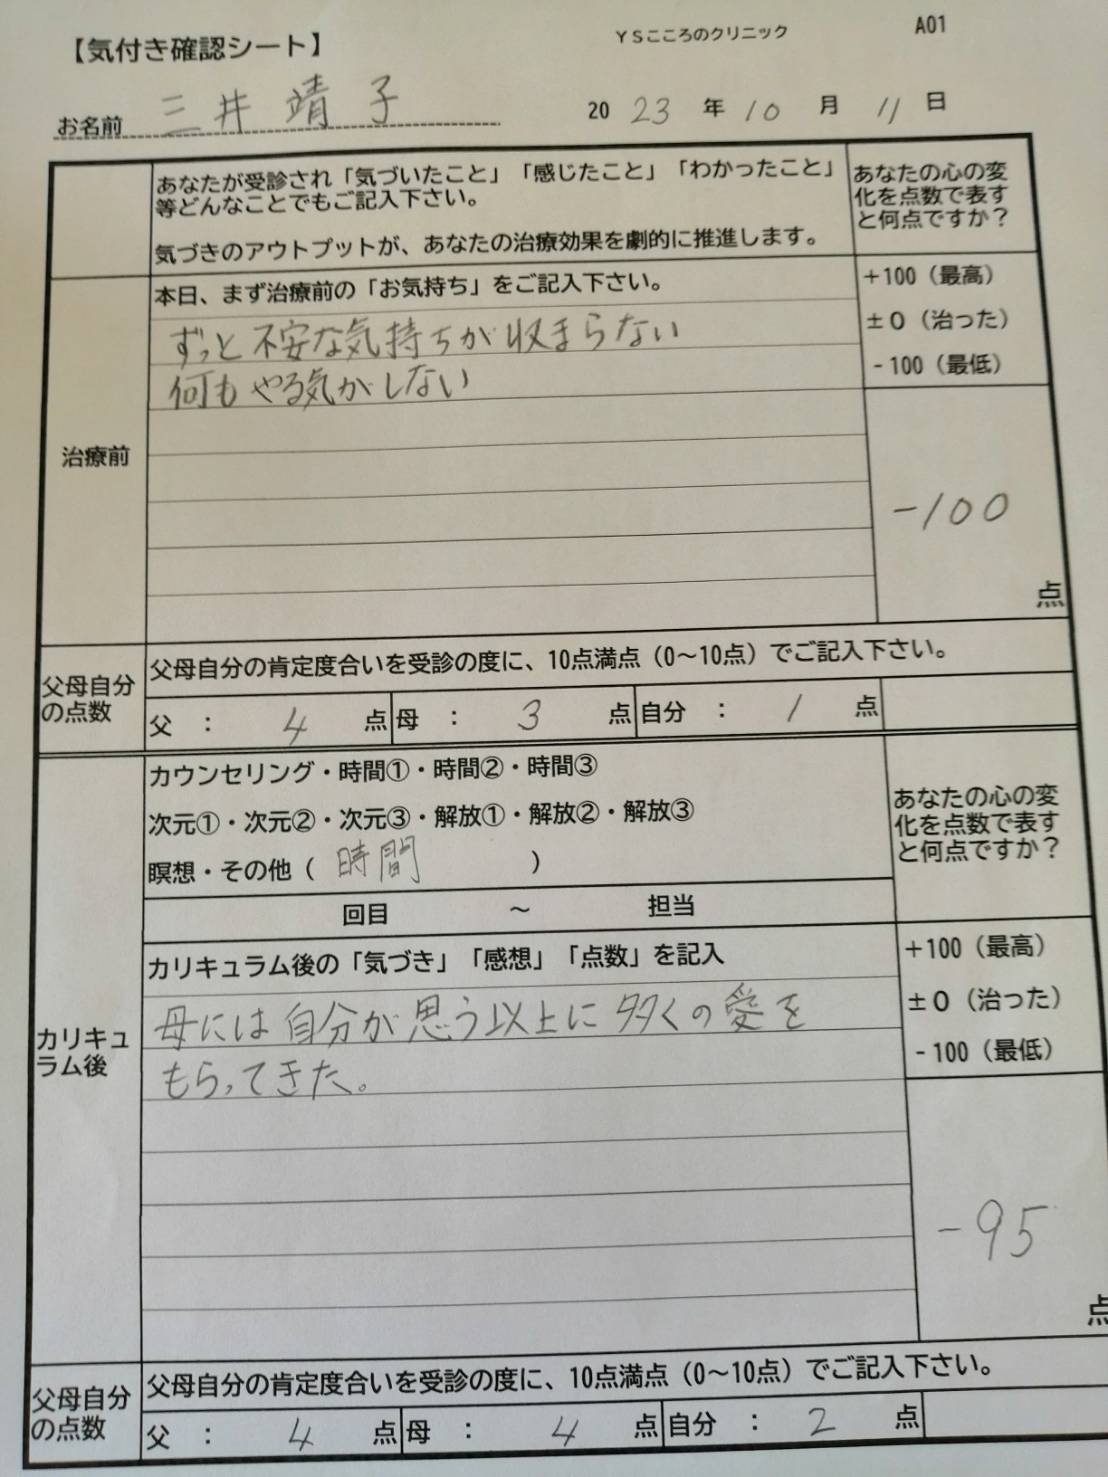 【気付き確認シート】
YSこころのクリニック
A01
お名前 三井 靖子
2023年10月11日
あなたが受診され「気づいたこと」「感じたこと」「わかったこと」
等どんなことでもご記入下さい。
気づきのアウトプットが、あなたの治療効果を劇的に推進します。
あなたの心の変
化を点数で表す
と何点ですか？
治療前
本日、まず治療前の「お気持ち」をご記入下さい。
ずっと不安な気持ちが収まらない
何もやる気がしない
+100（最高）
±0（治った）
-100（最低）
-100
点
父母自分
の点数
父母自分の肯定度合いを受診の度に、10点満点（0～10点）でご記入下さい。
父 ： 4 点 母 ： 3 点 自分 ： 1 点
カリキュ
ラム後
カウンセリング・時間①・時間②・時間③
次元①・次元②・次元③・解放①・解放②・解放③
瞑想・その他（ 時間 ）
回目 ～ 担当
あなたの心の変
化を点数で表す
と何点ですか？
カリキュラム後の「気づき」「感想」「点数」を記入
母には自分が思う以上に多くの愛を
もらってきた。
+100（最高）
±0（治った）
-100（最低）
-95
点
父母自分
の点数
父母自分の肯定度合いを受診の度に、10点満点（0～10点）でご記入下さい。
父 ： 4 点 母 ： 4 点 自分 ： 2 点